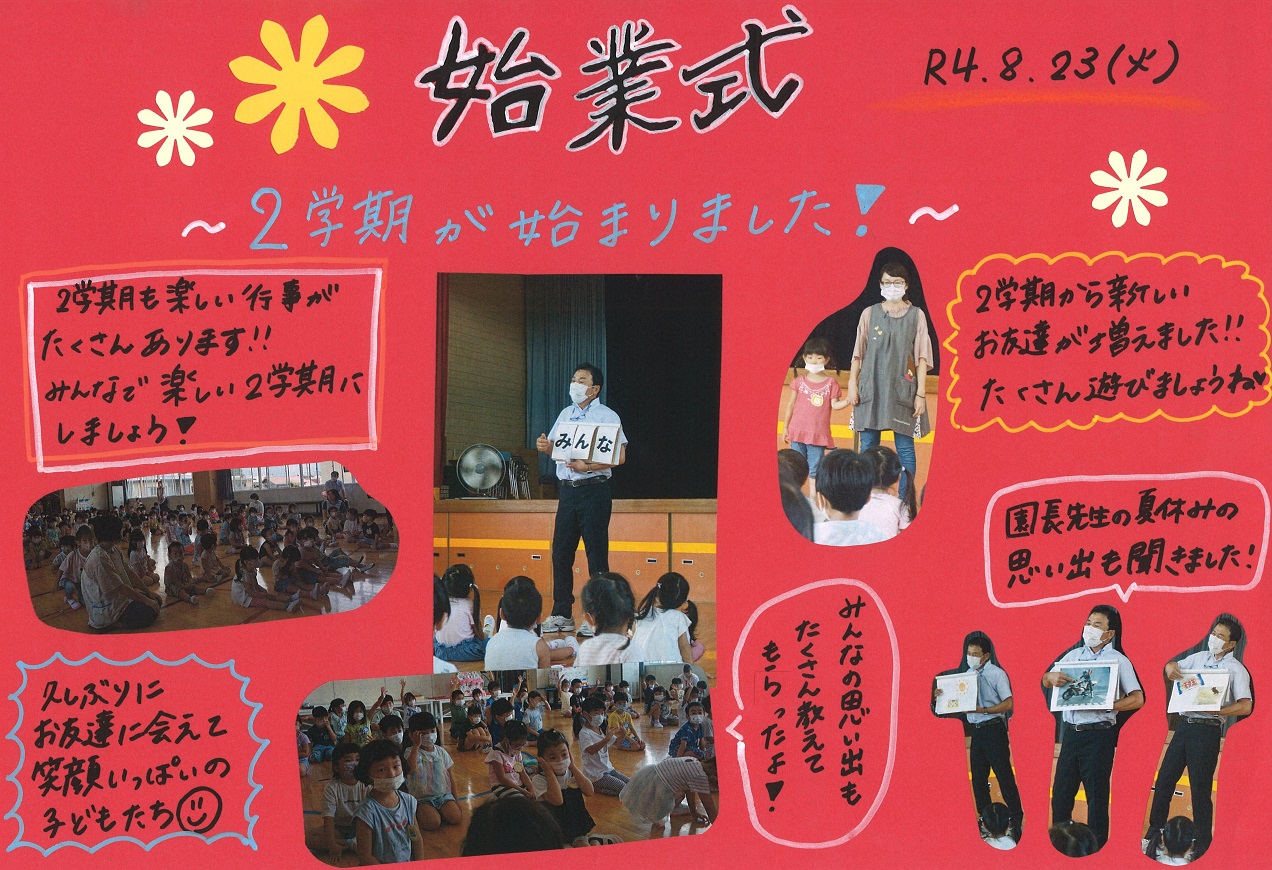 始業式
R4.8.23(火)
～2学期が始まりました!～
2学期も楽しい行事が
たくさんあります!!
みんなで楽しい2学期に
しましょう!
みんな
2学期から新しい
お友達が増えました!!
たくさん遊びましょうね♥
園長先生の夏休みの
思い出も聞きました!
みんなの思い出も
たくさん教えて
もらったよ!
久しぶりに
お友達に会えて
笑顔いっぱいの
子どもたち☺